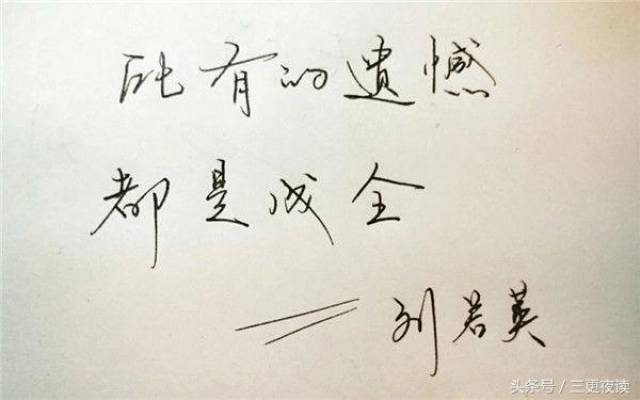 所有的遗憾
都是成全
——刘若英
头条号／三更夜读